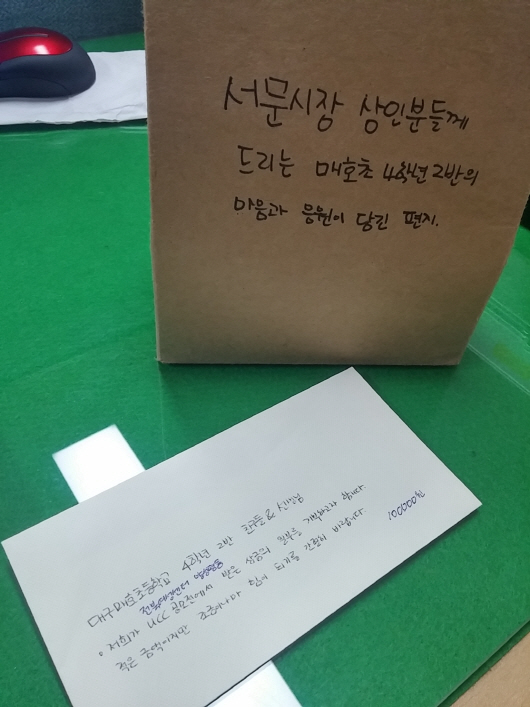 서문시장 상인분들께
드리는 매호초 4학년 2반의
마음과 응원이 담긴 편지.
대구매호초등학교 4학년 2반 친구들 & 선생님
저희가 UCC 공모전에서 받은 상금의 일부를 기부하고자 합니다.
작은 금액이지만 조금이나마 힘이 되기를 간절히 바랍니다.
100000원